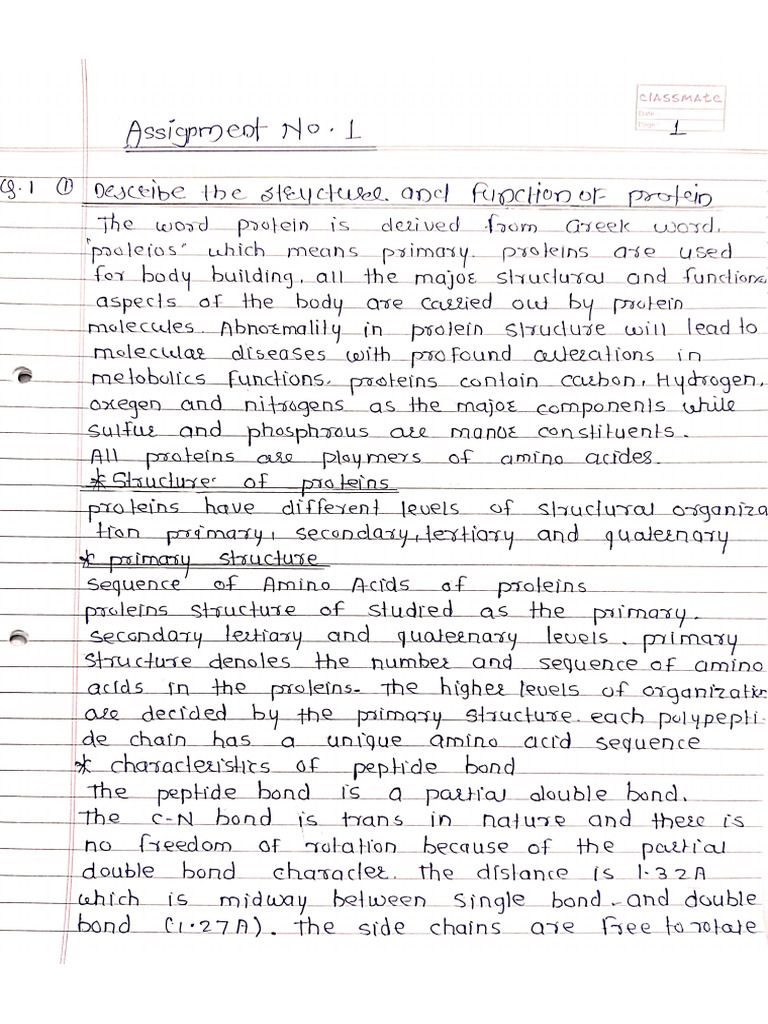 classmate
Date
Page 1
Assignment No. 1
Q.1 ① Describe the structure and function of protein
The word protein is derived from Greek word.
"proteios" which means primary. proteins are used
for body building. all the major structural and function
aspects of the body are carried out by protein
molecules. Abnormality in protein structure will lead to
molecular diseases with profound alterations in
metobolics functions. proteins contain carbon, Hydrogen,
oxegen and nitrogens as the major components while
sulfur and phosphrous are manor constituents.
All proteins are ploymers of amino acides.
* Structure of proteins
proteins have different levels of structural organiza
tion primary, secondary, tertiary and quaternary
* primary structure
sequence of Amino Acids of proteins
proteins structure of studied as the primary.
secondary tertiary and quaternary levels. primary
structure denotes the number and sequence of amino
acids in the proteins. The higher levels of organization
are decided by the primary structure. each polypepti-
de chain has a unique amino acid sequence
* characteristics of peptide bond
The peptide bond is a partial double bond.
The C-N bond is trans in nature and there is
no freedom of rotation because of the partial
double bond character. the distance is 1.32A
which is midway between single bond and double
bond (1.27A). the side chains are free to rotate